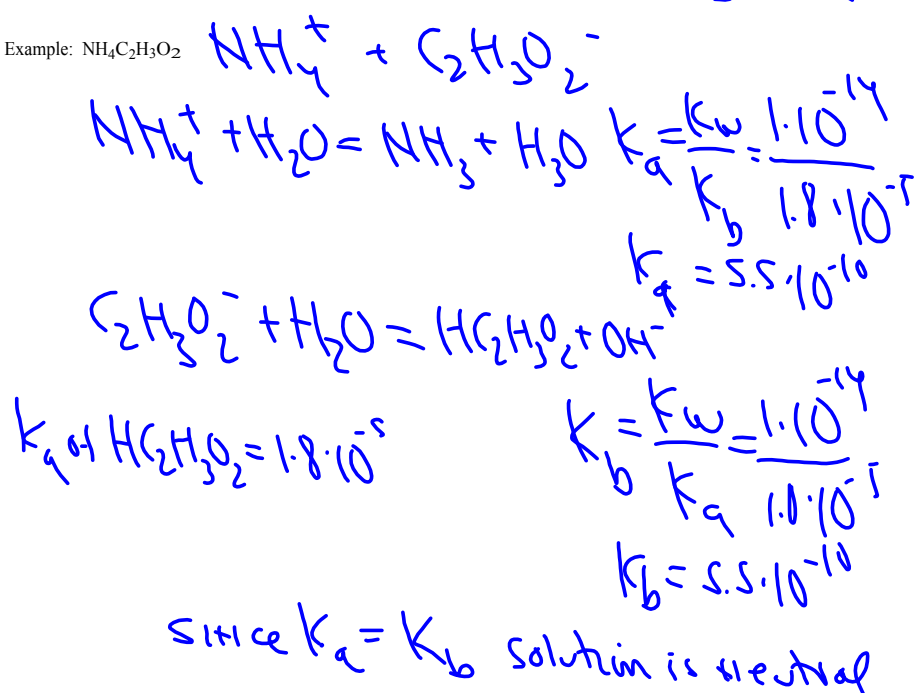 Example: NH₄C₂H₃O₂ NH₄⁺ + C₂H₃O₂⁻
NH₄⁺ + H₂O = NH₃ + H₃O Kₐ = Kw/K_b = 1·10⁻¹⁴/1.8·10⁻⁵
Kₐ = 5.5·10⁻¹⁰
C₂H₃O₂⁻ + H₂O = HC₂H₃O₂ + OH⁻
Kₐ of HC₂H₃O₂ = 1.8·10⁻⁵ K_b = Kw/Kₐ = 1·10⁻¹⁴/1.8·10⁻⁵
K_b = 5.5·10⁻¹⁰
since Kₐ = K_b solution is neutral